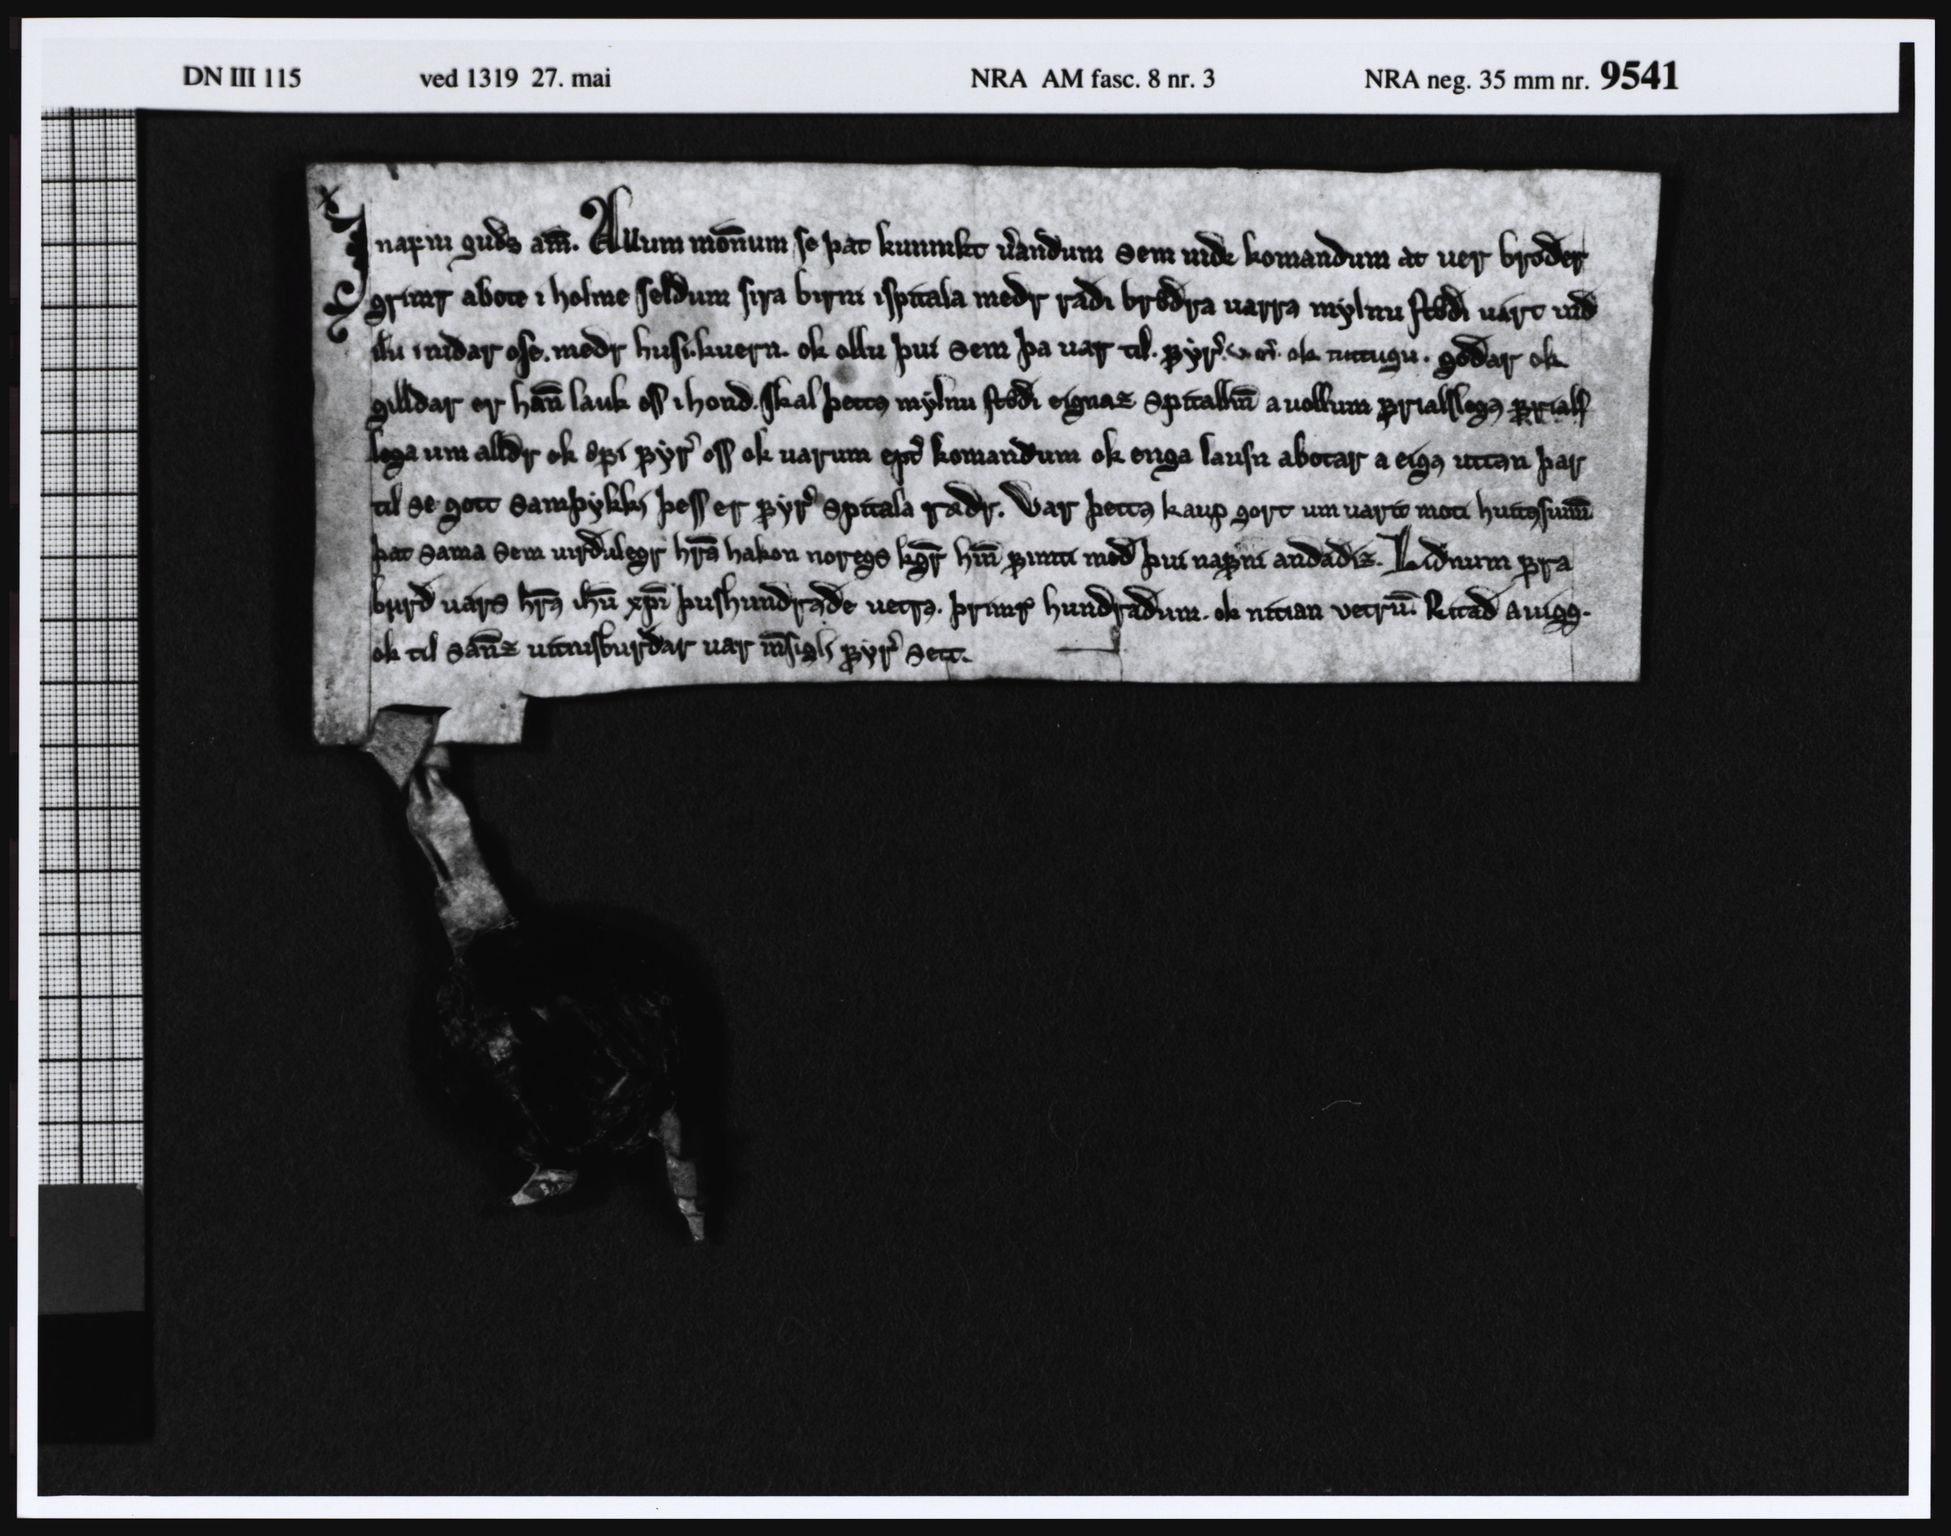 DN III 115 ved 1319 27. mai NRA AM fasc. 8 nr. 3 NRA neg. 35 mm nr. 9541
J nafni guds am̅. Allum mon̅um se þat kunnikt v̓andum sem uidr komandum at uer broder
grimr abote i holme seldum sira birni i spitala medr radi brødra uarra mylnu stødi uárt uid
ílu i nidar ose. medr husi. kuern. ok ollu þui sem þa uar til. fyr̓. ok nittugu. godar ok
gilldar er han̅ lauk oss i hond. skal þetta mylnu stødi eignaz spitallin̅ a uollum frialslega frials
lega um alldr ok æfi fyr̓ oss ok uarum ept̓ komandum ok enga lausn abotar a eiga uttan þar
til se gott samþykki þess er fyr̓ spitala rædr. Var þetta kaup gort um uarit moti huitasun̅u
þat sama sem uirdulegr hr̅a hakon noregs kgr̅ hin̅ fimti med þui nafni andadiz. Lidnum fra
burd uars hr̅a ih̅u xp̅i þushundrade uetra. þrimr̓ hundradum. ok nitian vetru̅. Ritad a uigg.
ok til san̅z uitnisburdar uar in̅sigli fyr̓ sett.